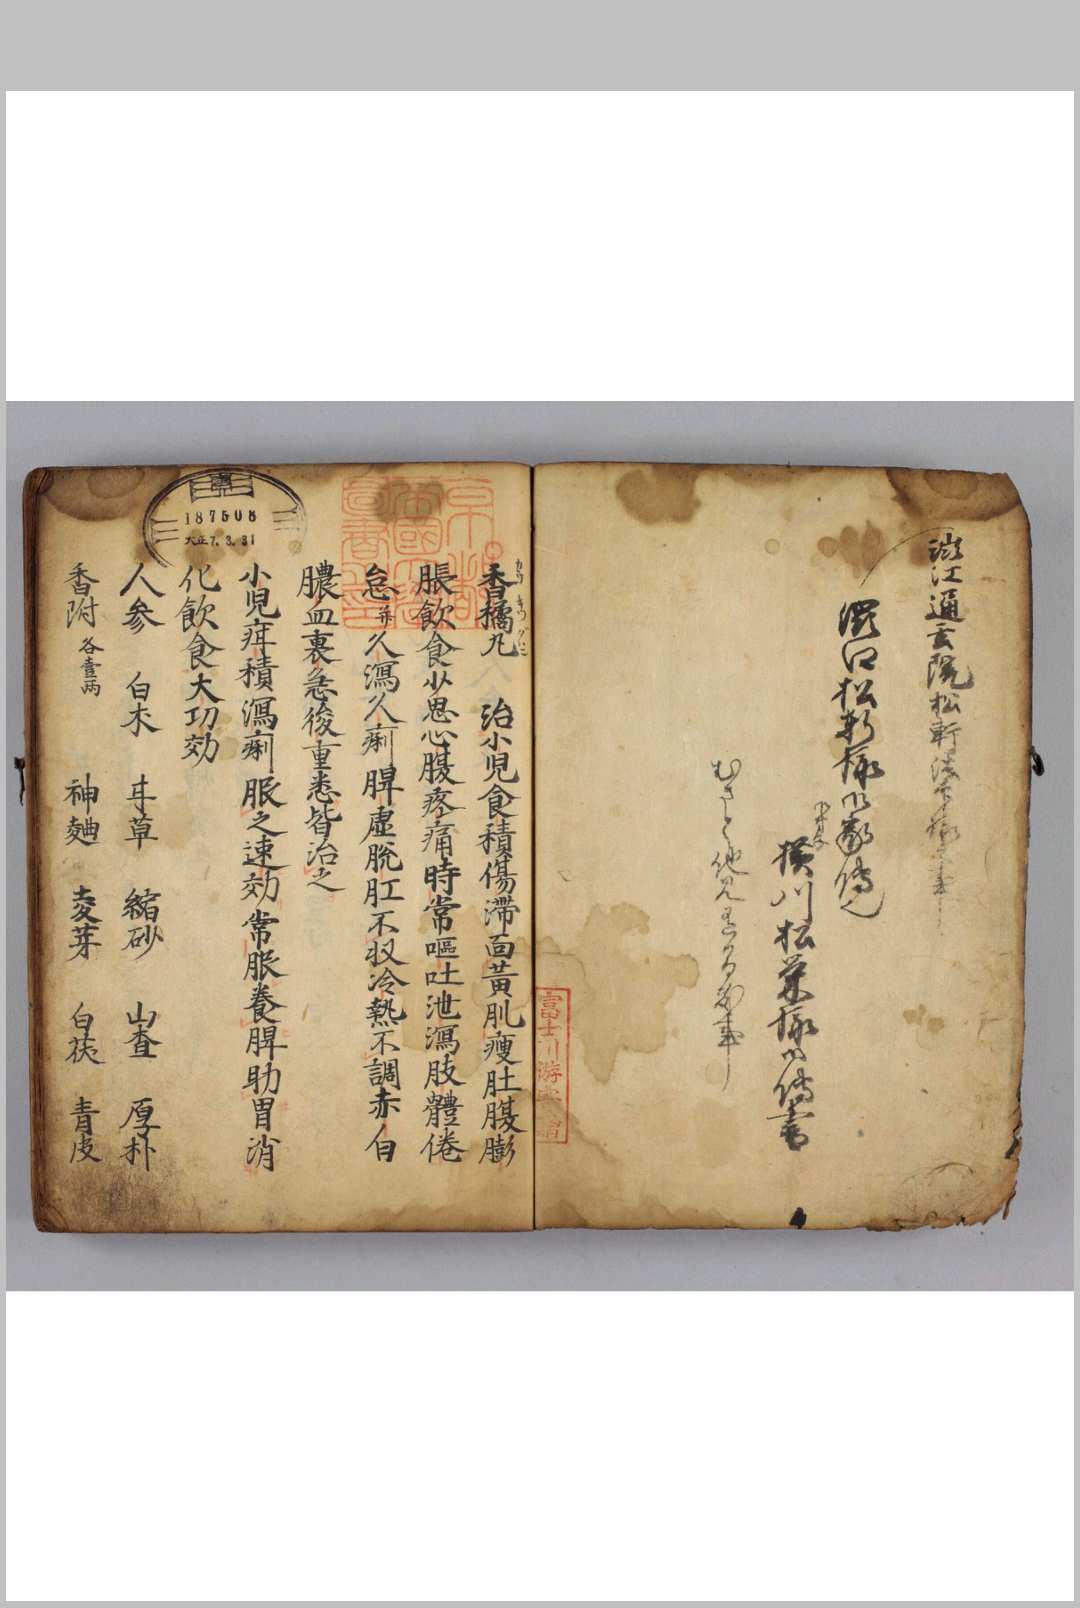 澁江通玄院松軒法印様
澁江松軒様御家傳
横川松葉様御傳書
むさと他見有るまじ事
富士川游
京都
帝國大學
圖書之印
香橘丸 治小児食積傷滞面黄肌痩肚膓膨
脹飲食少思心腹疼痛時常嘔吐池瀉肢體倦
怠并久瀉久痢脾虚脱肛不収冷熱不調赤白
膿血裏急後重悉皆治之
小児疳積瀉痢服之速効常服養脾助胃消
化飲食大功効
人参 白朮 甘草 縮砂 山査 厚朴
香附各壹兩 神麯 麦芽 白茯 青皮
187508
大正7.3.31